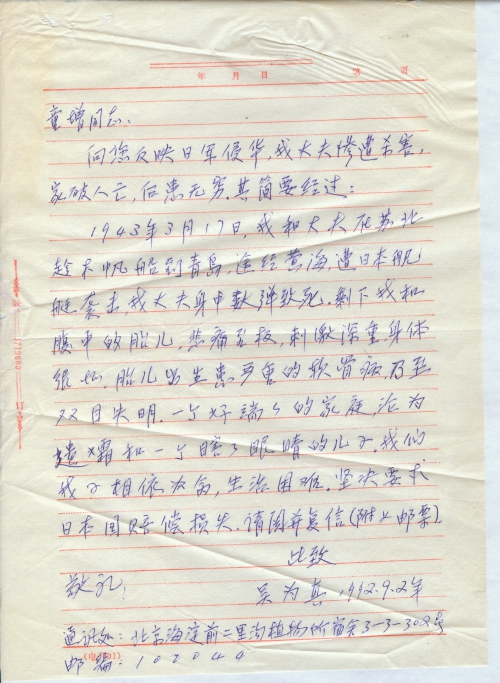 年 月 日 第 页
童增同志：
向您反映日军侵华，我丈夫惨遭杀害，
家破人亡，后患无穷。其简要经过：
1943年3月17日，我和丈夫在苏北
趁木帆船到青岛，途经黄海，遭日本舰
艇袭击，我丈夫身中数弹致死，剩下我和
腹中的胎儿，悲痛至极，刺激深重，身体
很坏，胎儿出生患严重的软骨病，乃至
双目失明，一个好端々的家庭沦为
遗孀和一个瞎了眼睛的儿子，我们
母子相依为命，生活困难。坚决要求
日本国赔偿损失，请阅并复信(附上邮票)。
此致
敬礼！
吴为真 1992.9.2年
通讯处：北京海淀前二里沟植物所宿舍3-3-302号
邮编：100044